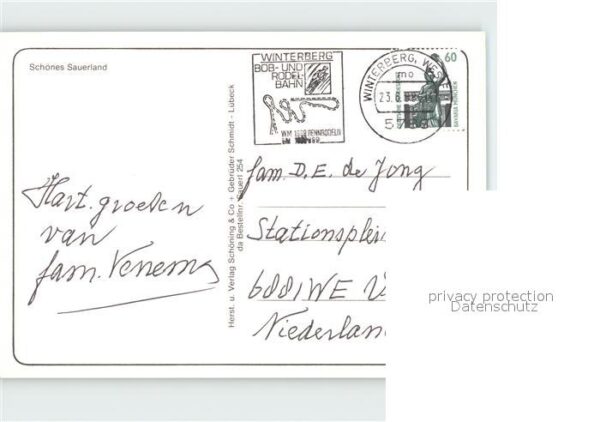 Schönes Sauerland
WINTERBERG
BOB- UND
RODEL-
BAHN
WINTERBERG, WEST
mo
23.6.
60
Herst. u. Verlag Schöning & Co + Gebrüder Schmidt - Lübeck
254
Hart. groeten
van
fam. Venema
fam. D. E. de Jong
Stationsplein
6881WE
Niederlan
privacy protection
Datenschutz